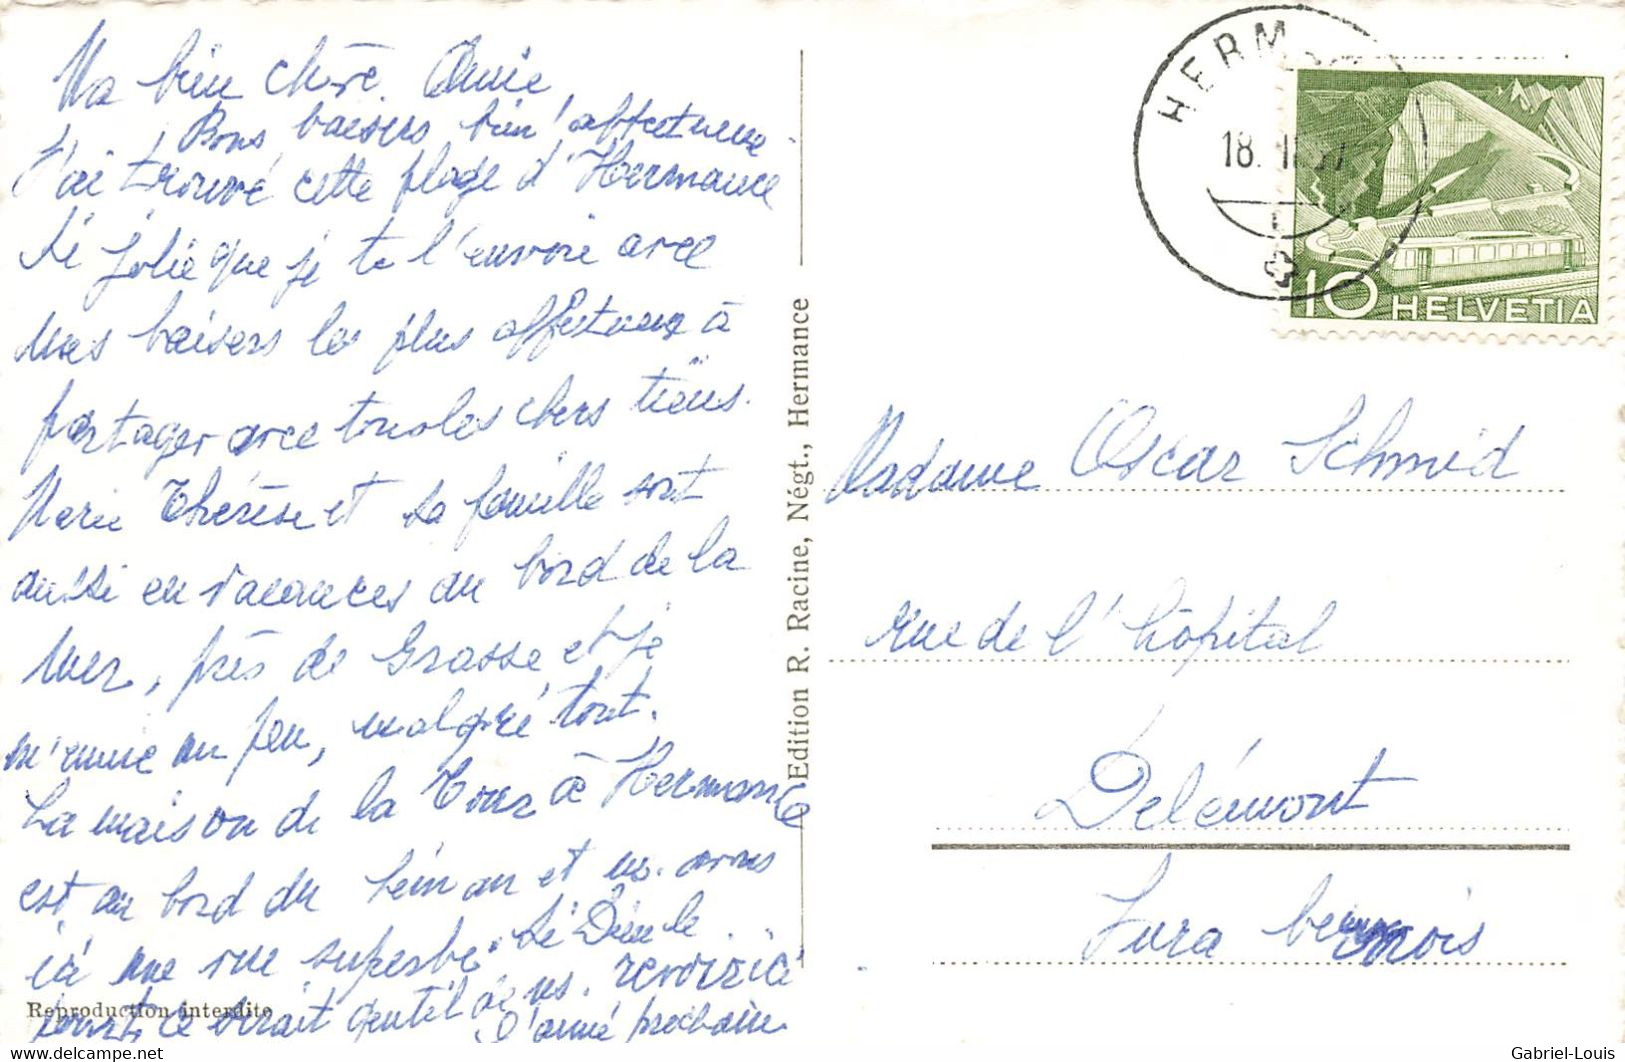 Ma bien chère Annie,
Bons baisers bien affectueux
J'ai trouvé cette plage d'Hermance
si jolie que je te l'envoie avec
mes baisers les plus affectueux à
partager avec tous les chers tiens.
Marie Thérèse et sa famille sont
aussi en vacances au bord de la
Mer, près de Grasse et je
m'ennuie un peu, malgré tout.
La maison de la Tour à Hermance
est au bord du Léman et ns. avons
ici une vue superbe. Si Dieu le
permet, ce serait gentil de vs. revoir ici
l'année prochaine
Reproduction interdite
Edition R. Racine, Négt., Hermance
HERM
18.
10 HELVETIA
Madame Oscar Schmid
rue de l'hôpital
Delémont
Jura bernois
Gabriel-Louis